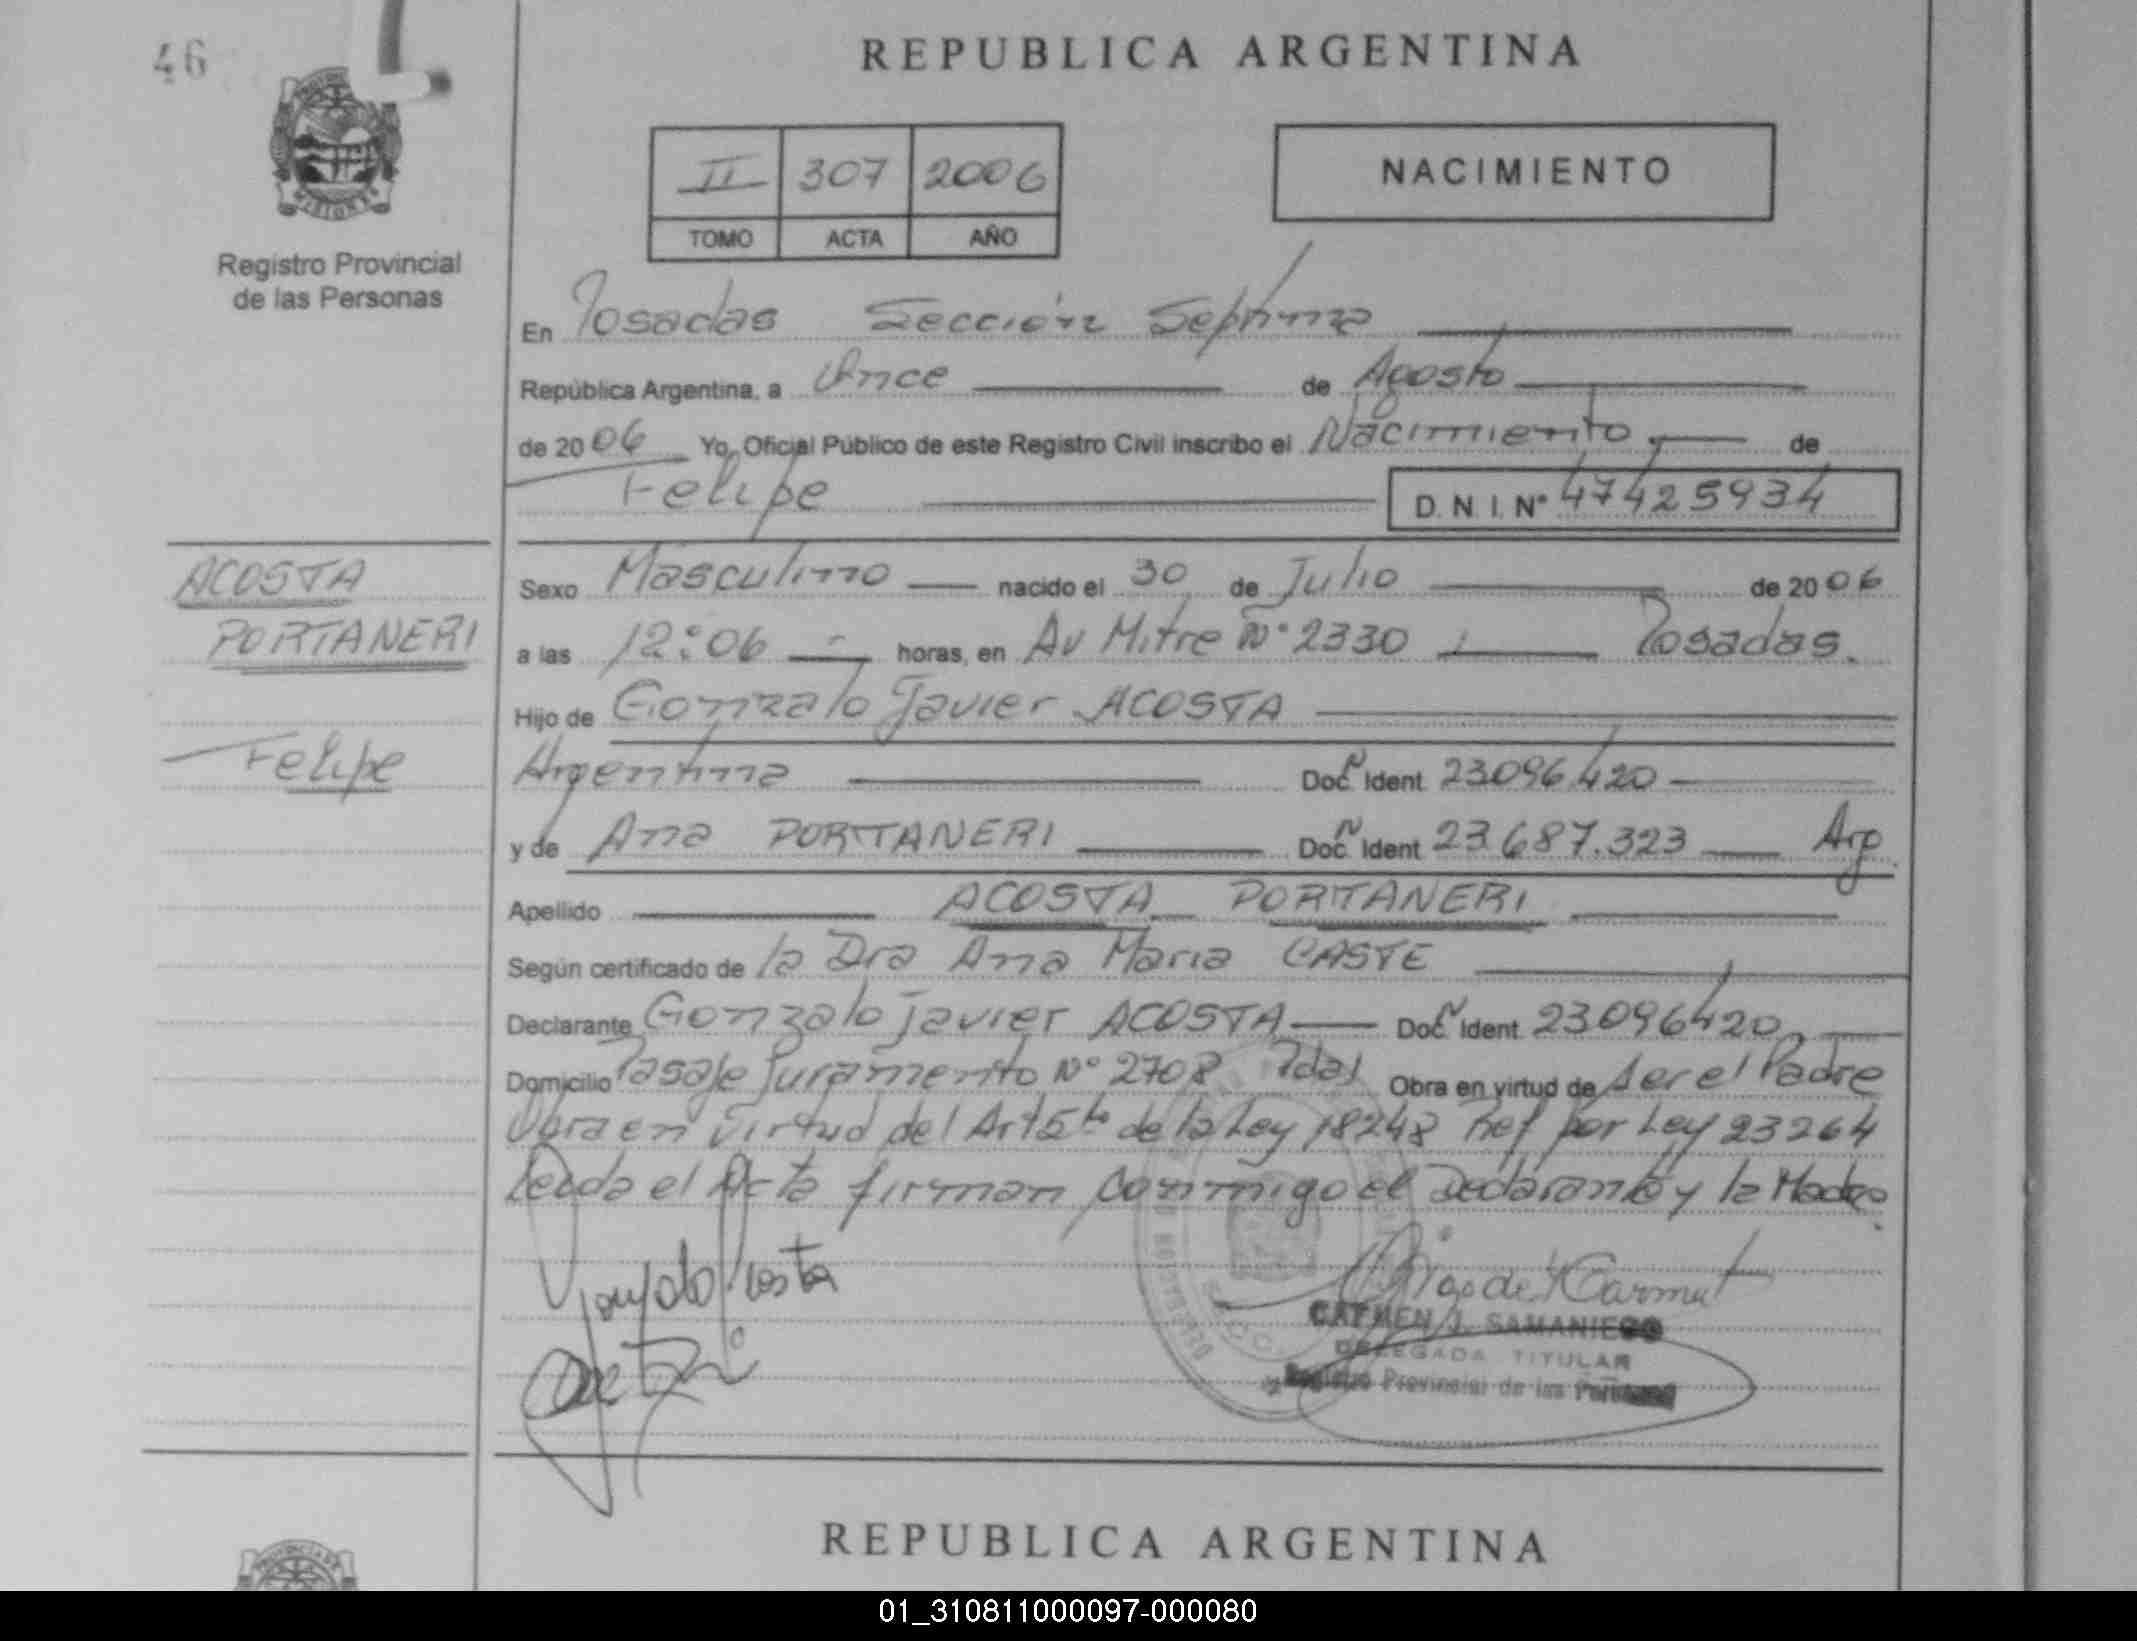 46
REPUBLICA ARGENTINA
II 307 2006
TOMO ACTA AÑO
NACIMIENTO
Registro Provincial
de las Personas
En Posadas Sección Séptima
República Argentina, a Once de Agosto
de 2006 Yo, Oficial Público de este Registro Civil inscribo el Nacimiento de
Felipe D. N. I. N° 47425934
ACOSTA
PORTANERI
Felipe
Sexo Masculino nacido el 30 de Julio de 2006
a las 12:06 horas, en Av Mitre N° 2330 Posadas.
Hijo de Gonzalo Javier ACOSTA
Argentina Doc Ident 23096420
y de Ana PORTANERI Doc Ident 23.687.323 Arg
Apellido ACOSTA PORTANERI
Según certificado de la Dra Ana Maria CASTE
Declarante Gonzalo Javier ACOSTA Doc Ident 23096420
Domicilio Pasaje Juramento N° 2708 Pdas Obra en virtud de ser el Padre
Obra en virtud del Art 5to de la Ley 18248 Ref por Ley 23264
Leida el Acta firman conmigo el Declarante y la Madre
Gonzalo Acosta
CARMEN J. SAMANIEGO
DELEGADA TITULAR
Registro Provincial de las Personas
REPUBLICA ARGENTINA
01_310811000097-000080